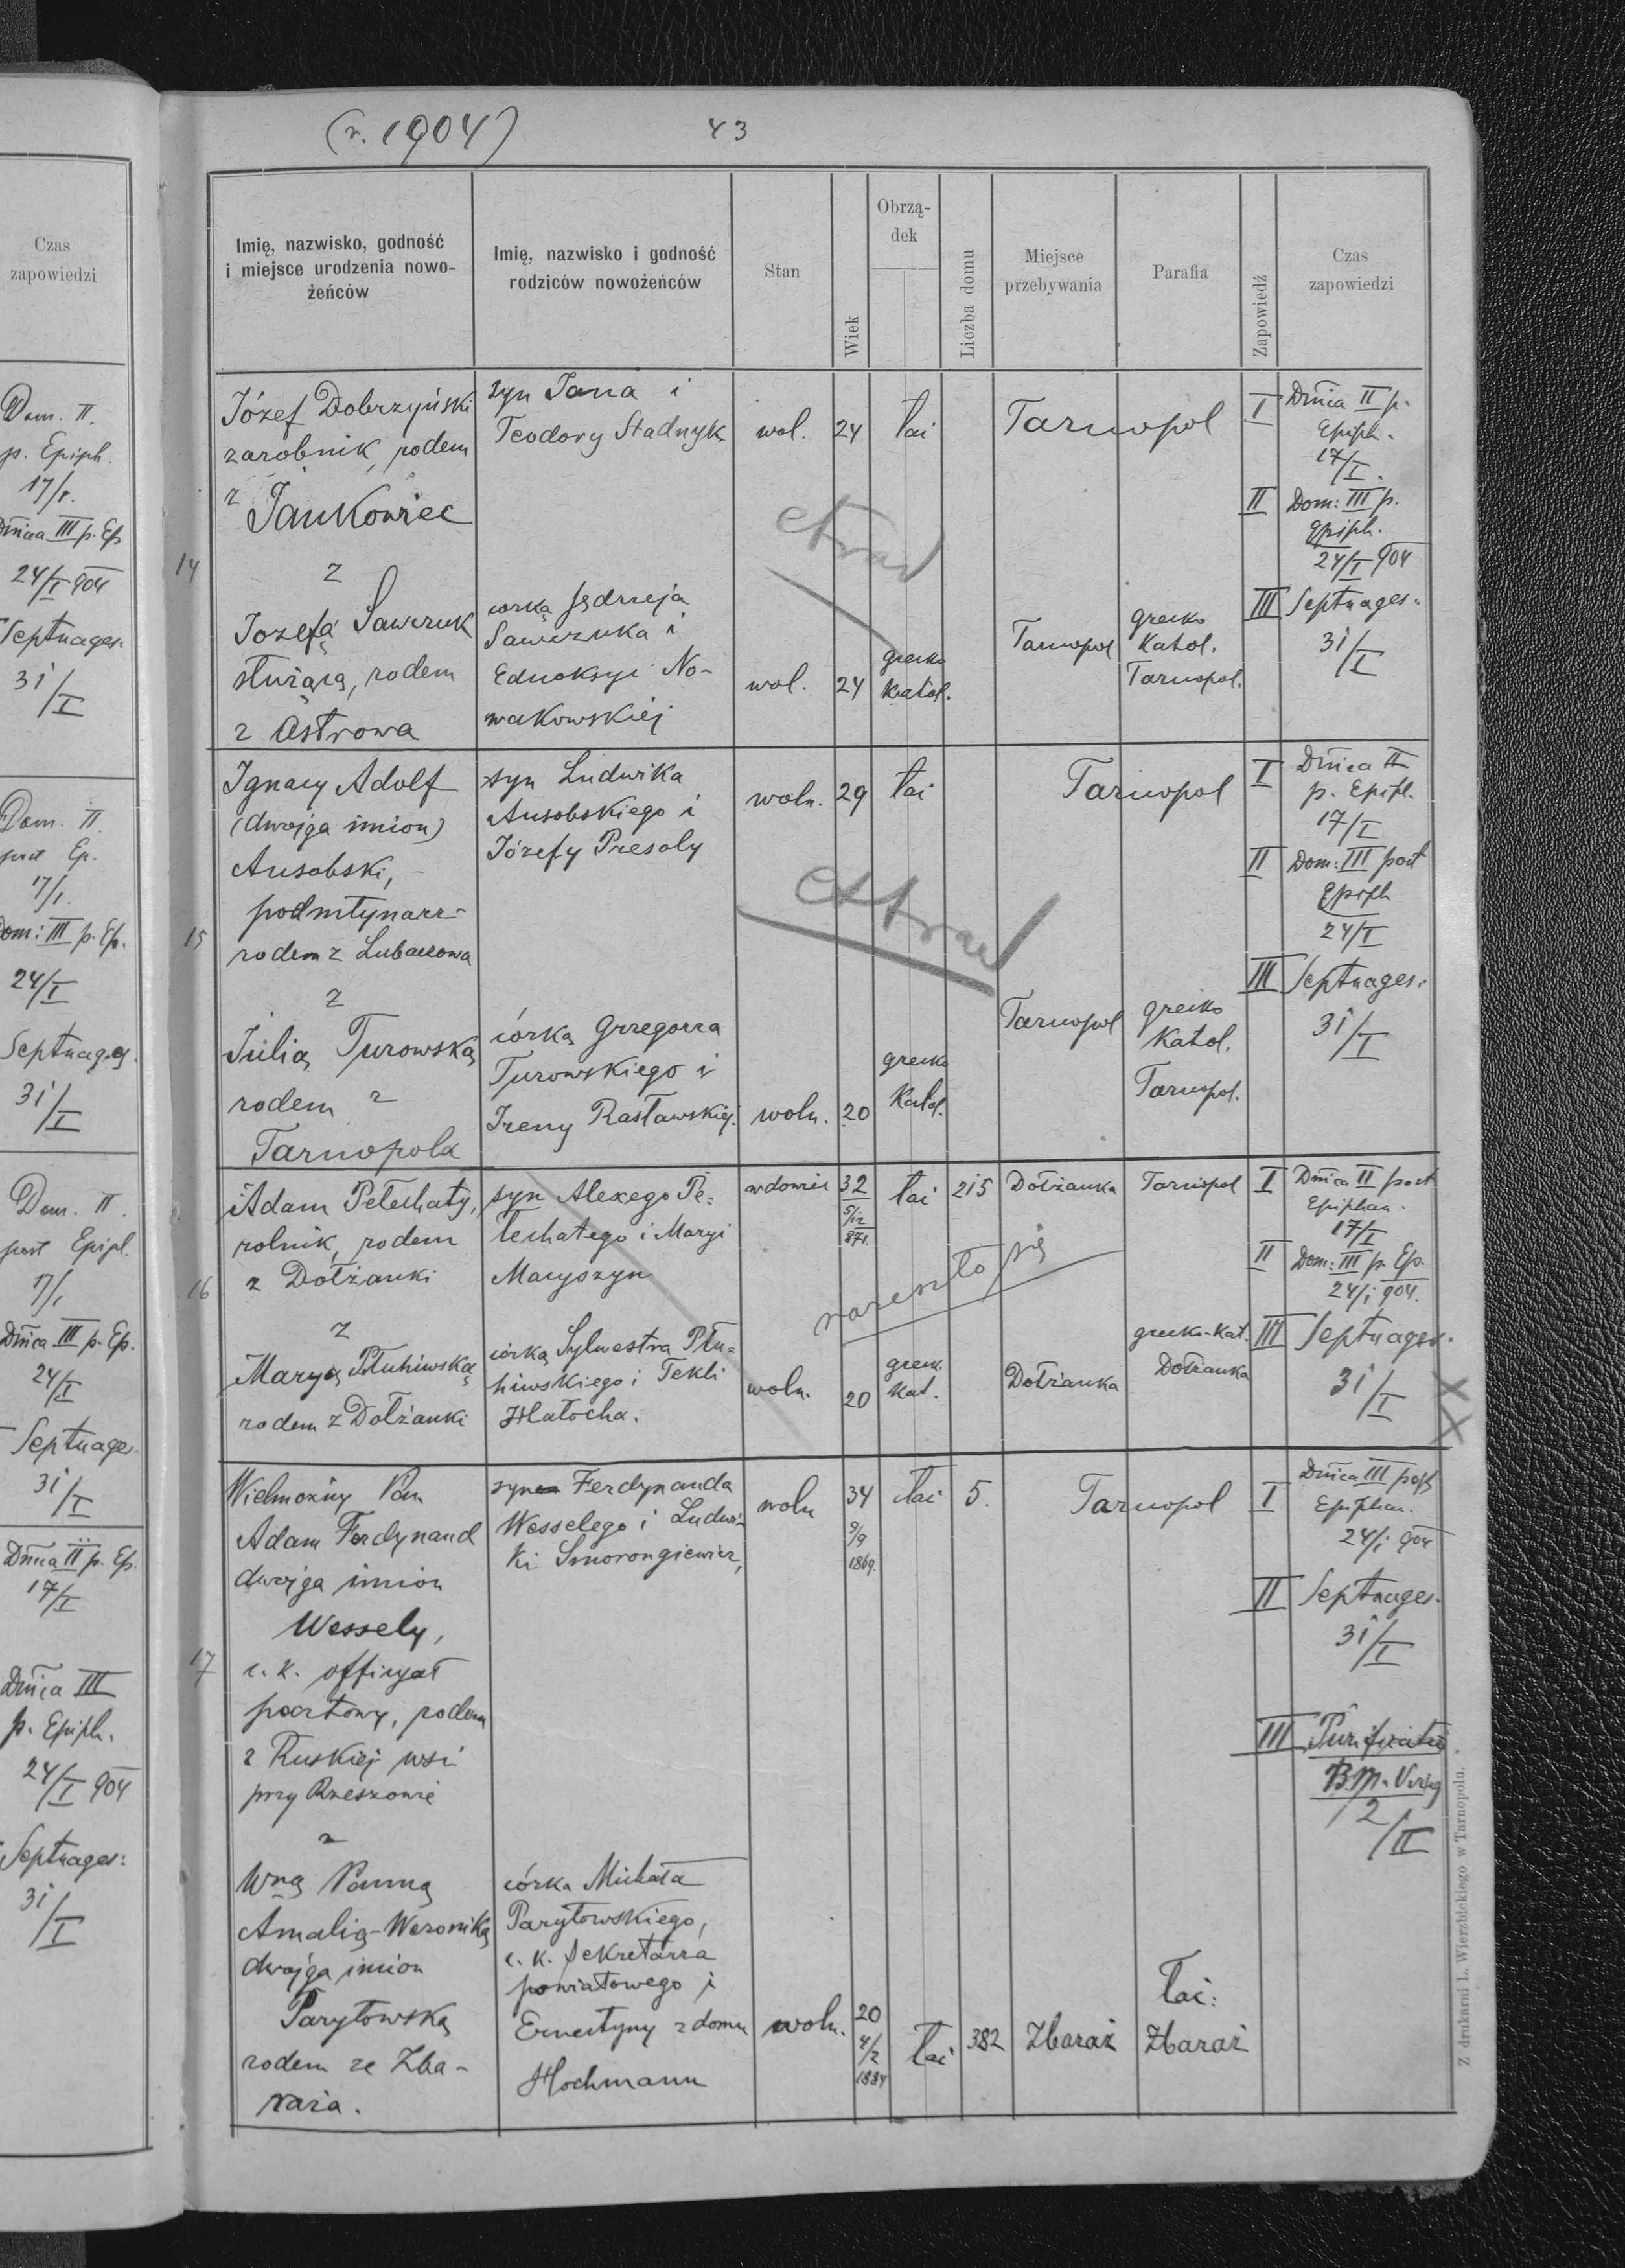 Czas
zapowiedzi
Dom. II.
p. Epiph.
17/I.
Dnica III p. Ep
24/I 904
Septuages:
31/I
Dom. II.
post Ep.
17/I.
Dom: III p. Ep.
24/I
Septuages.
31/I
Dom. II.
post Epipl.
17/I
Dnica III p. Ep.
24/I
Septuages.
31/I
Dnica II p. Ep.
17/I
Dnica III
p. Epiph.
24/I 904
Septuages:
31/I
(r. 1904)
43
Imię, nazwisko, godność
i miejsce urodzenia nowo-
żeńców
Imię, nazwisko i godność
rodziców nowożeńców
Stan
Wiek
Obrzą-
dek
Liczba domu
Miejsce
przebywania
Parafia
Zapowiedź
Czas
zapowiedzi
14
Józef Dobrzyński
zarobnik, rodem
z Jankowiec
z
Jozefą Sawczuk
służącą, rodem
z Ostrowa
syn Jana i
Teodory Stadnyk
córką Jędrzeja
Sawczuka i
Eudoksyi No-
wakowskiej
wol. 24 łac
Tarnopol
extrad
wol. 24
grecko
katol.
Tarnopol
grecko
Katol.
Tarnopol.
I Dnica II p.
Epiph.
17/I.
II Dom: III p.
Epiph.
24/I 904
III Septuages:
31/I
15
Ignacy Adolf
(dwojga imion)
Ausobski,
podmłynarz-
rodem z Lubaczowa
z
Julią Turowską
rodem z
Tarnopola
syn Ludwika
Ausobskiego i
Józefy Presoly
córką Grzegorza
Turowskiego i
Ireny Rasławskiej.
woln. 29 łac
Tarnopol
extrad
woln. 20
grecko
Katol.
Tarnopol
grecko
Katol.
Tarnopol.
I Dnica II
p. Epiph.
17/I
II Dom: III post
Epiph
24/I
III Septuages:
31/I
16
Adam Petechaty,
rolnik, rodem
z Dołżanki
z
Maryą Płuhiwską
rodem z Dołżanki
syn Alexego Pe-
techatego i Maryi
Macyszyn
córką Sylwestra Płu-
hiwskiego i Tekli
Hałocha.
wdowiec 32
5/12
871.
łac 215 Dołżanka Tarnopol
rozeszło się
woln. 20
greck.
kat.
Dołżanka
grecko-kat.
Dołżanka
I Dnica II post
Epiphan.
17/I
II Dom: III p. Ep.
24/I 904.
III Septuages.
31/I
17
Wielmożny Pan
Adam Ferdynand
dwojga imion
Wessely,
c. k. officyał
pocztowy, rodem
z Ruskiej wsi
przy Rzeszowie
z
Wną Panną
Amalią-Weroniką
dwojga imion
Parytowską
rodem ze Zba-
raża.
syn Ferdynanda
Wesselego i Ludwi-
ki Smorongiewicz,
córka Michała
Parytowskiego,
c. k. sekretarza
powiatowego i
Ernestyny z domu
Hochmann
woln 34
9/9
1869.
łac 5. Tarnopol
woln. 20
4/2
1884
łac 382 Zbaraż
łac:
Zbaraż
I Dnica III post
Epiphan.
24/I 904
II Septuages.
31/I
III Purificatio
B.M. Virg
2/II
Z drukarni L. Wierzbickiego w Tarnopolu.